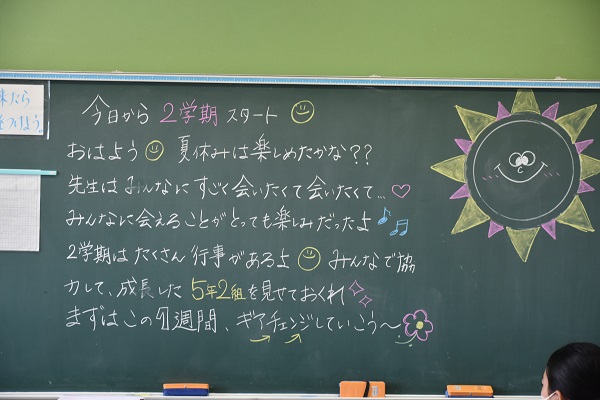 今日から 2学期 スタート
おはよう 夏休みは楽しめたかな??
先生は みんなに すごく会いたくて会いたくて…♡
みんなに会えることがとっても楽しみだったよ♪♫
2学期は たくさん 行事があるよ みんなで協
力して、成長した 5年2組を見せておくれ
まずはこの1週間、ギアチェンジしていこう〜